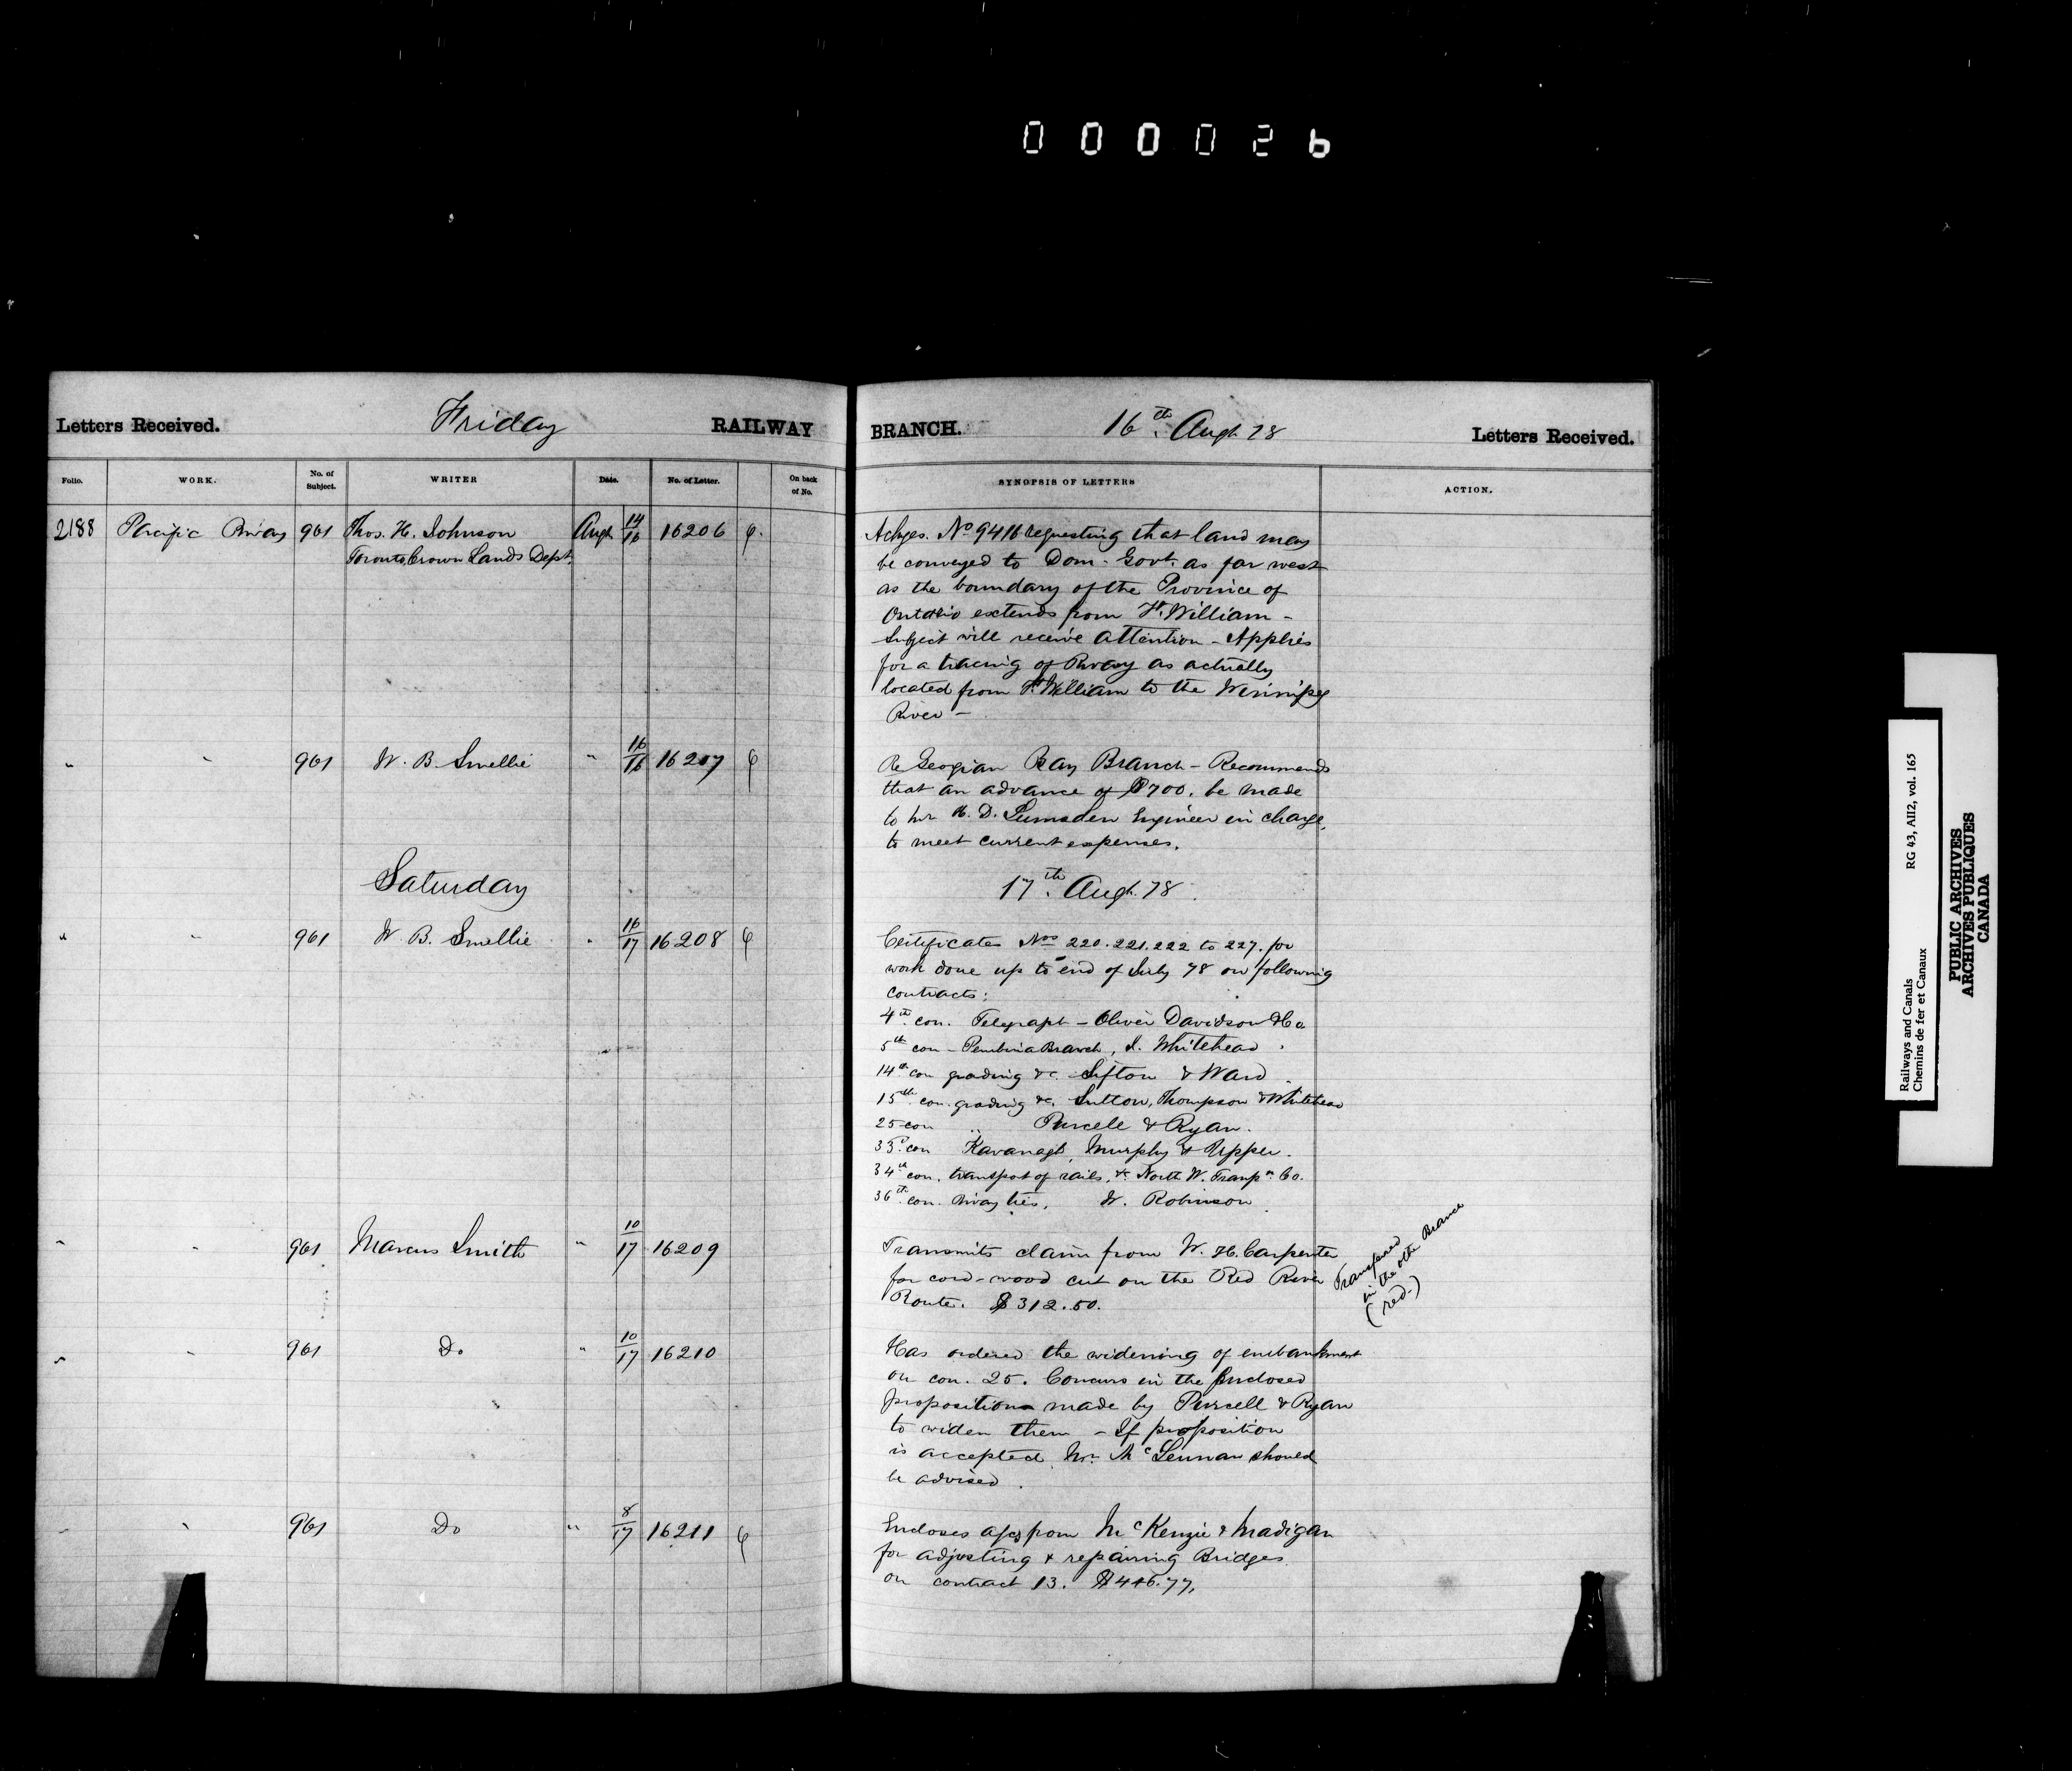 000026
Letters Received. Friday RAILWAY BRANCH. 16th Augt. 78 Letters Received.
Folio. WORK. No. of Subject. WRITER Date. No. of Letter. On back of No. SYNOPSIS OF LETTERS ACTION.
2188 Pacific Rway 961 Thos. H. Johnson Augt 14/16 16206 Ackges. No 9416 requesting that land may
Toronto, Crown Lands Dept. be conveyed to Dom. Govt. as far west
as the boundary of the Province of
Ontario extends from Ft. William -
Subject will receive attention - Applies
for a tracing of Rway as actually
located from Ft William to the Winnipeg
River -
" " 961 W. B. Smellie " 16/16 16207 Re Geogian Bay Branch - Recommends
that an advance of $700. be made
to Mr H. D. Lumsden Engineer in charge,
to meet current expenses.
Saturday 17th Augt. 78.
" " 961 W. B. Smellie " 16/17 16208 Certificates Nos 220.221.222 to 227. for
work done up to end of July 78 on following
contracts:
4th con. Telegraph - Oliver Davidson & Co
5th con - Pembina Branch, J. Whitehead.
14th con grading &c. Sifton & Ward
15th con. grading &c. Sutton, Thompson & Whitehead
25 con " Purcell & Ryan.
33d. con Kavanagh, Murphy & Upper.
34th con. transport of rails, &c North W. Transpn Co.
36th con. Rway ties, W. Robinson
" " 961 Marcus Smith " 10/17 16209 Transmits claim from W. H. Carpenter
for cord-wood cut on the Red River
Route. $312.50.
Transferred
in the other Branch
(red.)
" " 961 Do " 10/17 16210 Has ordered the widening of embankment
on con. 25. Concurs in the enclosed
propositions made by Purcell & Ryan
to widen them - If proposition
is accepted Mr. McLennan should
be advised.
" " 961 Do " 8/17 16211 Encloses a/cs from McKenzie & Madigan
for adjusting & repairing Bridges
on contract 13. $446.77.
Railways and Canals RG 43, AII2, vol. 165
Chemins de fer et Canaux
PUBLIC ARCHIVES
ARCHIVES PUBLIQUES
CANADA